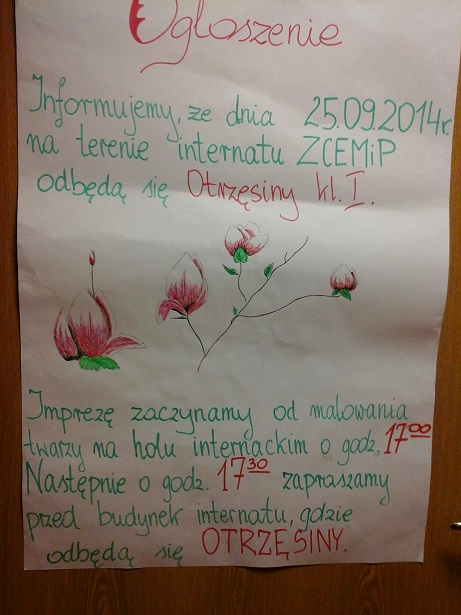 Ogłoszenie
Informujemy, że dnia 25.09.2014r.
na terenie internatu ZCEMiP
odbędą się Otrzęsiny kl. I.
Imprezę zaczynamy od malowania
twarzy na holu internackim o godz. 17⁰⁰
Następnie o godz. 17³⁰ zapraszamy
przed budynek internatu, gdzie
odbędą się OTRZĘSINY.